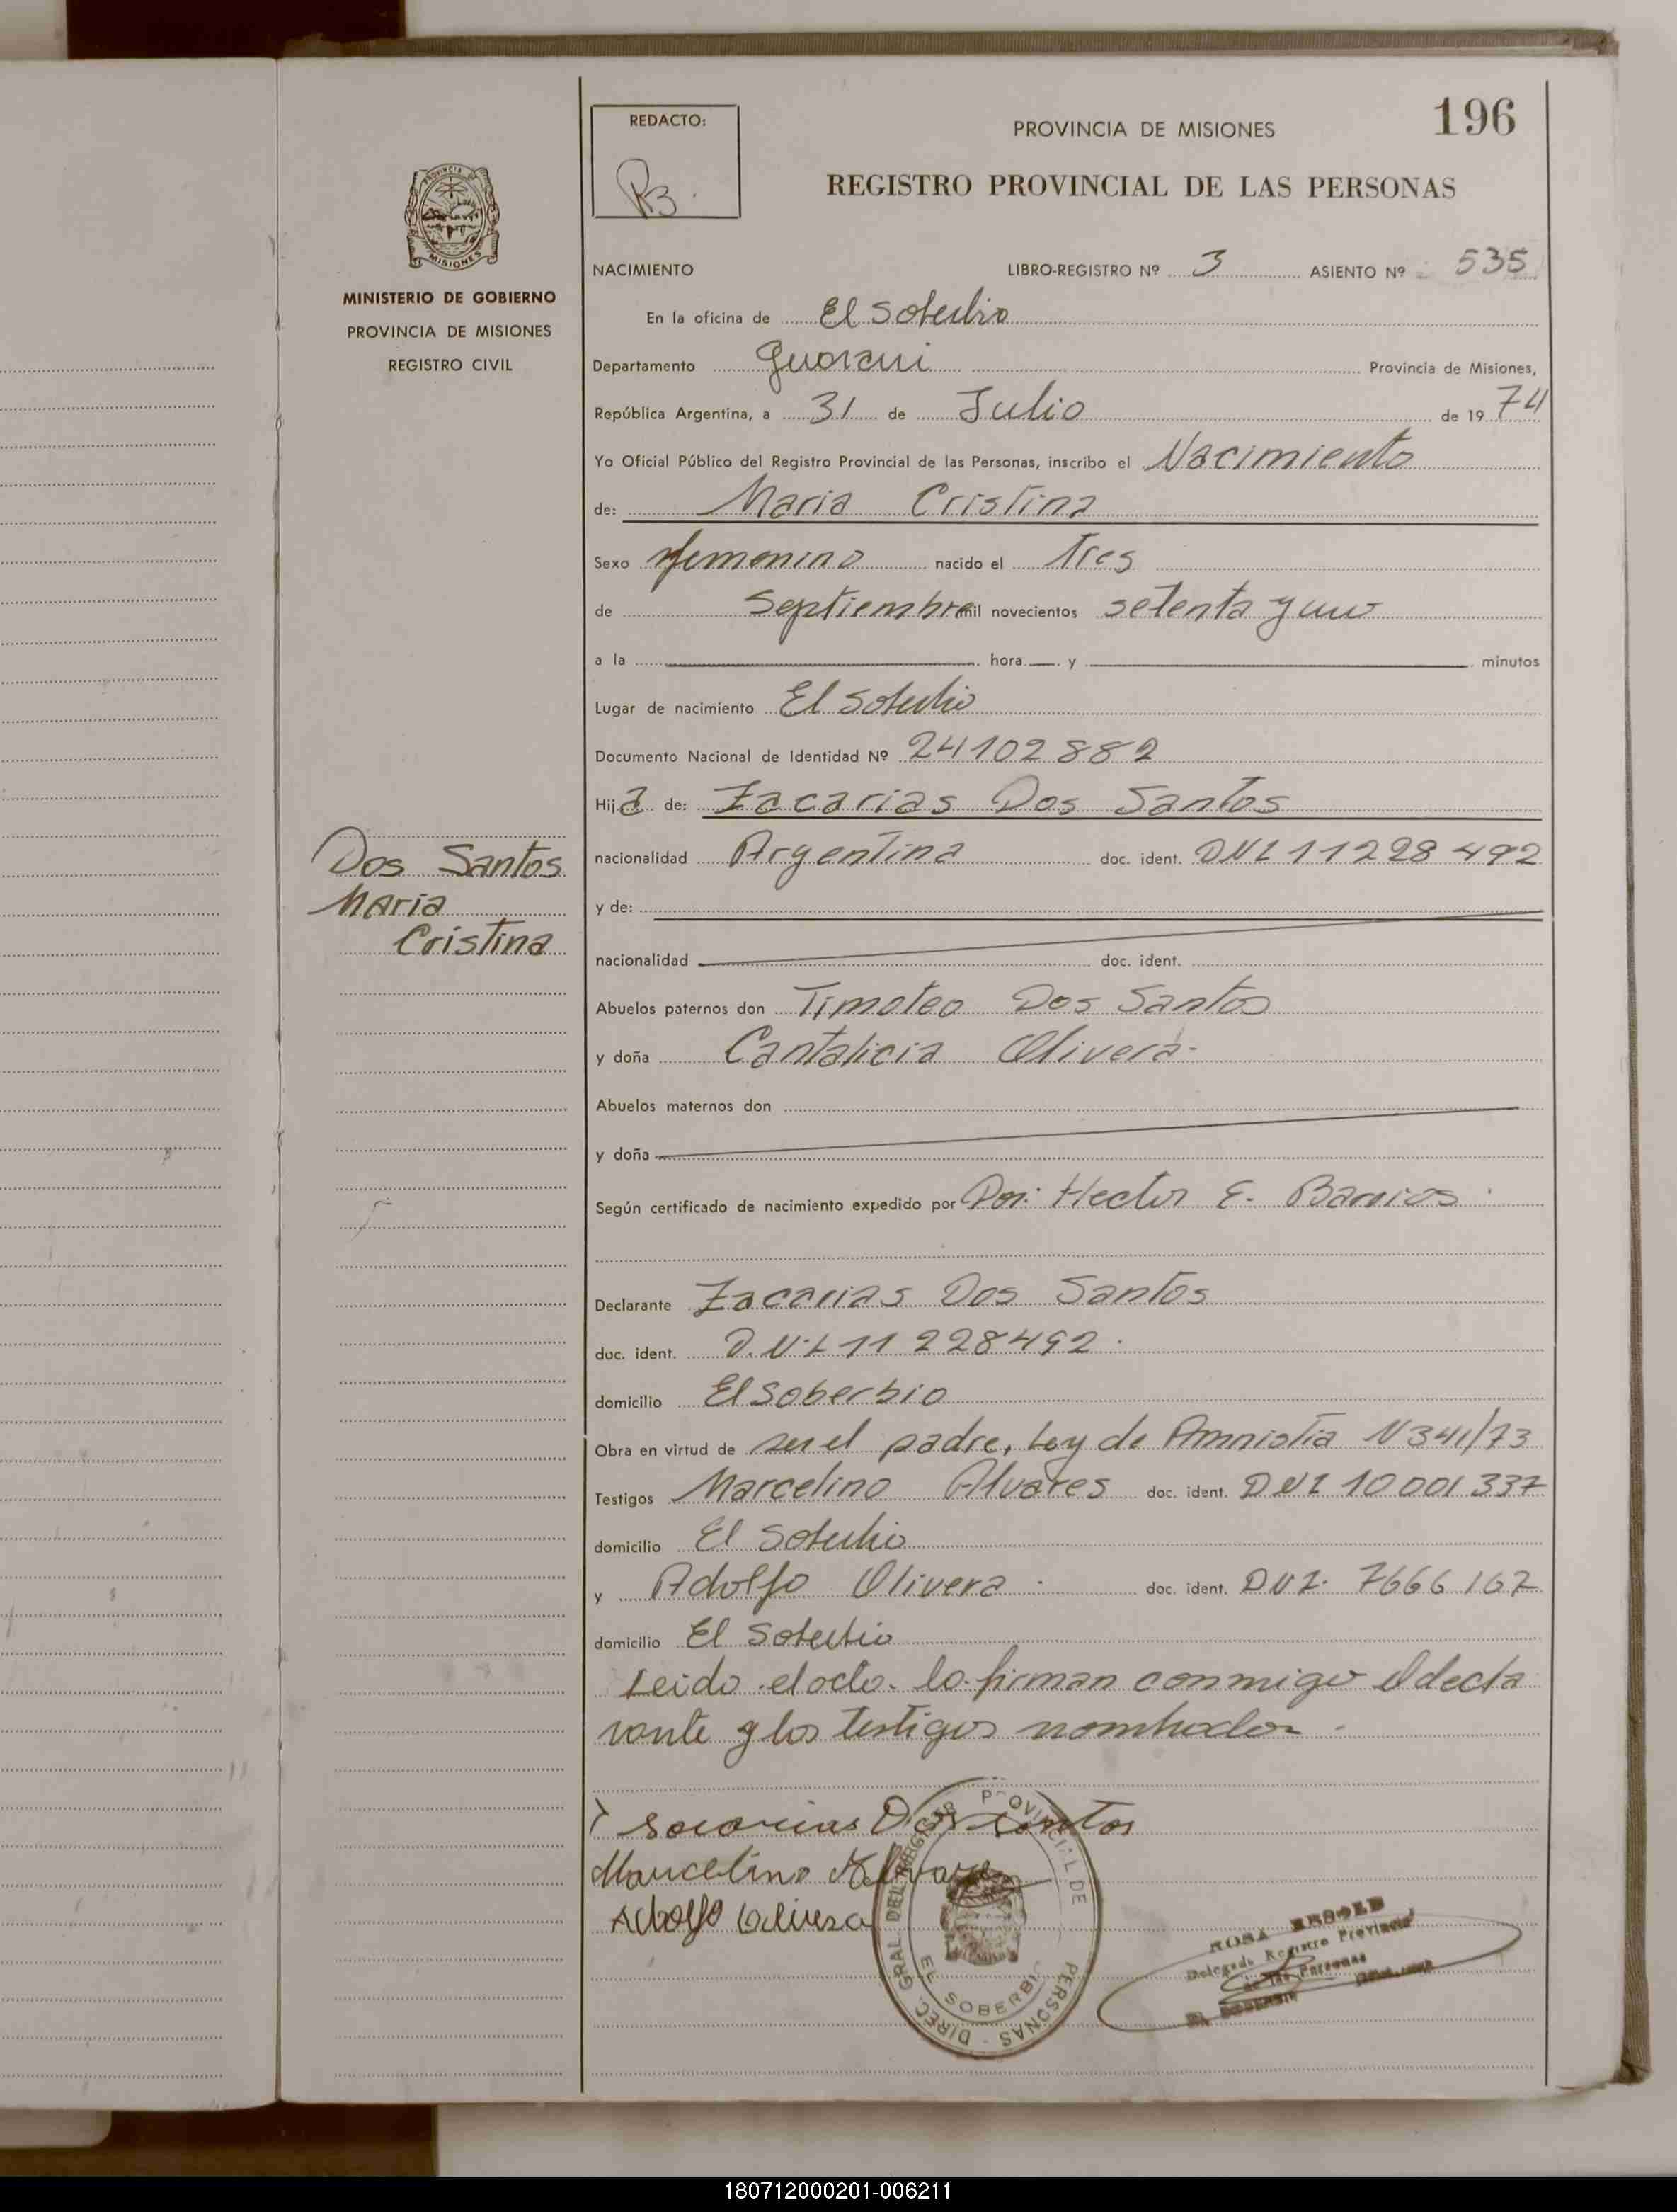 196
REDACTO:
PROVINCIA DE MISIONES
REGISTRO PROVINCIAL DE LAS PERSONAS
PROVINCIA DE
MISIONES
MINISTERIO DE GOBIERNO
PROVINCIA DE MISIONES
REGISTRO CIVIL
NACIMIENTO LIBRO-REGISTRO Nº 3 ASIENTO Nº 535
En la oficina de El Soberbio
Departamento Guarani Provincia de Misiones,
República Argentina, a 31 de Julio de 1974
Yo Oficial Público del Registro Provincial de las Personas, inscribo el Nacimiento
de: Maria Cristina
Sexo femenino nacido el Tres
de Septiembre mil novecientos setenta y uno
a la hora y minutos
Lugar de nacimiento El Soberbio
Documento Nacional de Identidad Nº 24102882
Hija de: Zacarias Dos Santos
nacionalidad Argentina doc. ident. DNI 11228492
Dos Santos
Maria
Cristina
y de:
nacionalidad doc. ident.
Abuelos paternos don Timoteo Dos Santos
y doña Cantalicia Olivera-
Abuelos maternos don
y doña
Según certificado de nacimiento expedido por Por: Hector E. Barrios
Declarante Zacarias Dos Santos
doc. ident. D.N.I 11 228492.
domicilio El Soberbio
Obra en virtud de ser el padre, Ley de Amnistia N 341/73
Testigos Marcelino Alvares doc. ident. DNI 10001337
domicilio El Soberbio
y Adolfo Olivera - doc. ident. DNI. 7666167
domicilio El Soberbio
Leido el acto lo firman conmigo el decla
rante y los testigos nombrados -
Socorias Dos Santos
Marcelino Alvares
Adolfo Olivera
DIREC. GRAL. DEL REGISTR PROVINCIAL DE PERSONAS -
EL SOBERBIO
ROSA
Delegada Registro Provincial
de las Personas
EL SOBERBIO
180712000201-006211